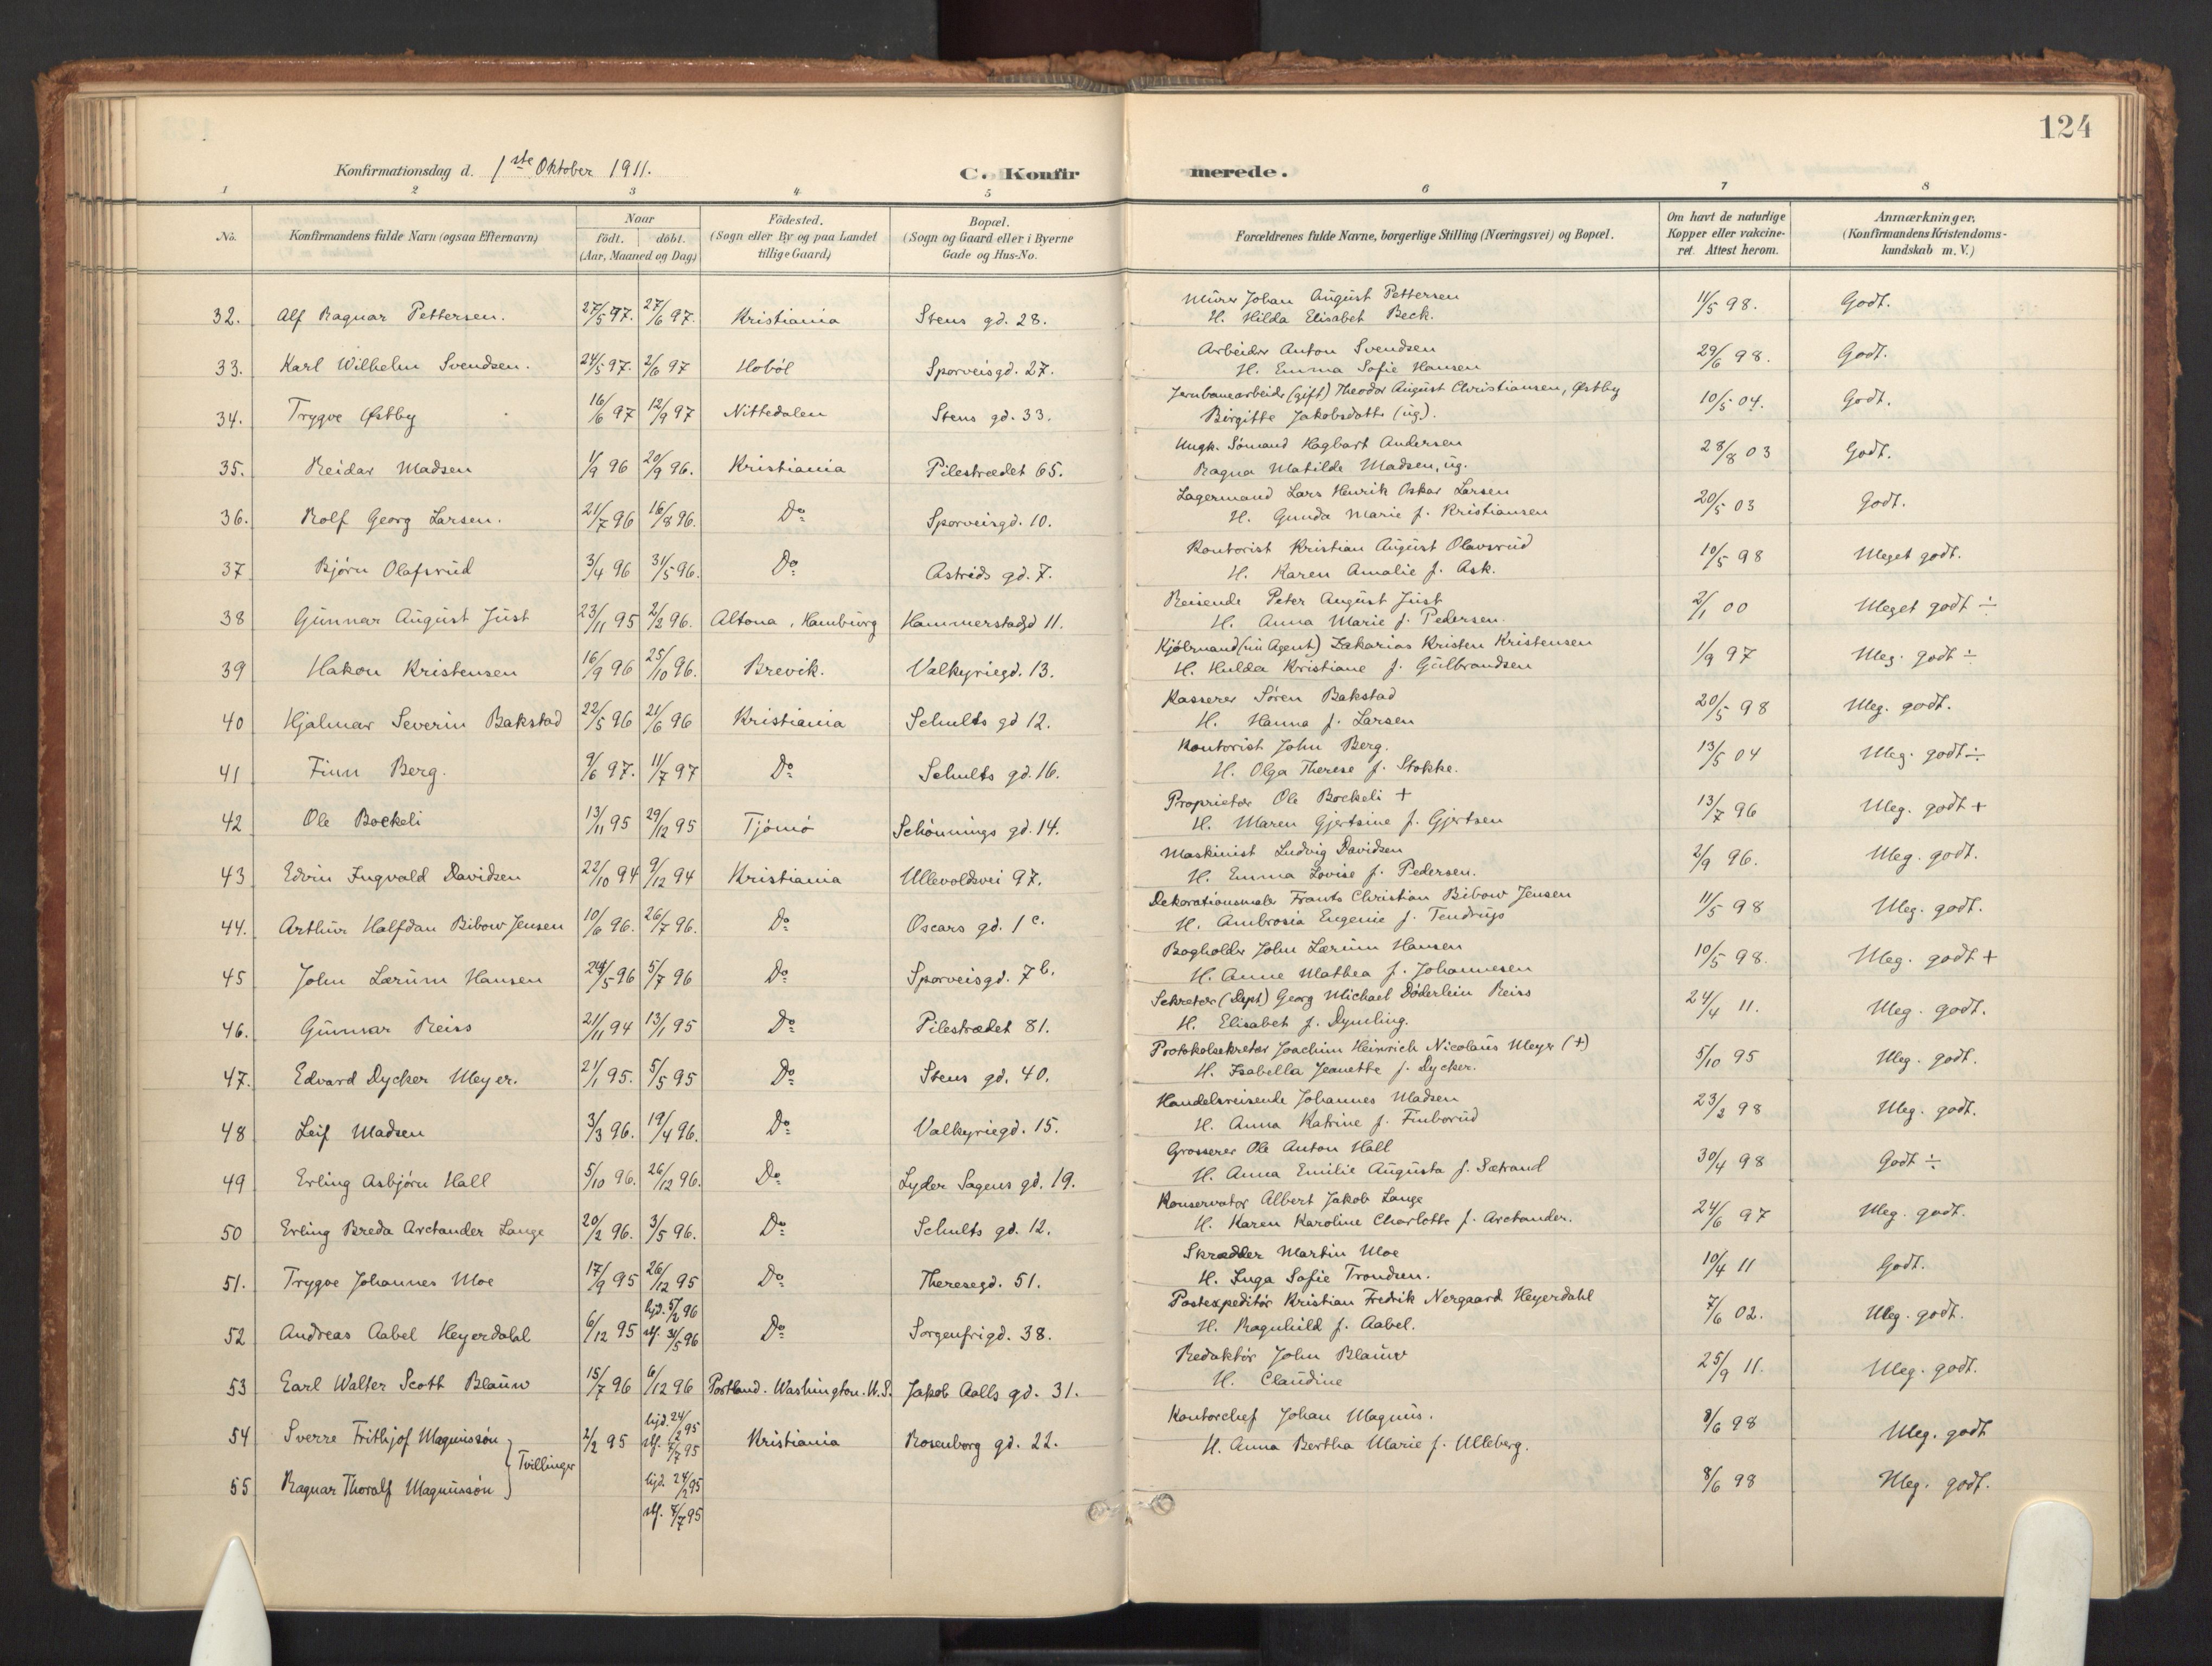 124
Konfirmationsdag d. 1ste Oktober 1911.
C. Konfirmerede.
1 2 3 4 5 6 7 8
No. Konfirmandens fulde Navn (ogsaa Efternavn) Naar födt. döbt. (Aar, Maaned og Dag) Födested. (Sogn eller By og paa Landet tillige Gaard) Bopæl. (Sogn og Gaard eller i Byerne Gade og Hus-No. Forældrenes fulde Navne, borgerlige Stilling (Næringsvei) og Bopæl. Om havt de naturlige Kopper eller vakcineret. Attest herom. Anmærkninger. (Konfirmandens Kristendomskundskab m. V.)
32. Alf Ragnar Pettersen. 27/5 97. 27/6 97. Kristiania Stens gd. 28. Murer Johan August Pettersen 11/5 98. Godt.
H. Hilda Elisabet Beck.
33. Karl Wilhelm Svendsen. 24/5 97. 2/6 97 Hoböl Sporveisgd. 27. Arbeider Anton Svendsen 29/6 98. Godt.
H. Emma Sofie Hansen
34. Trygve Østby 16/6 97 12/9 97 Nittedalen Stens gd. 33. Jernbanearbeider (gift) Theodor August Christiansen, Østby 10/5 04. Godt.
Birgitte Jakobsdatter (ug).
35. Reidar Madsen 1/9 96 20/9 96. Kristiania Pilestrædet 65. Ungk. Sömand Hagbart Andersen 28/8 03 Godt.
Ragna Matilde Madsen, ug.
36. Rolf Georg Larsen. 21/7 96 16/8 96. Do Sporveisgd. 10. Lagermand Lars Henrik Oskar Larsen 20/5 03 Godt.
H. Gunda Marie f. Kristiansen
37 Björn Olafsrud 3/4 96 31/5 96. Do Astrids gd. 7. Kontorist Kristian August Olavsrud 10/5 98 Meget godt.
H. Karen Amalie f. Ask.
38 Gunnar August Just 23/11 95 2/2 96. Altona, Hamburg Hammerstadgd 11. Reisende Peter August Just 2/1 00 Meget godt ÷
H. Anna Marie f. Pedersen.
39 Hakon Kristensen 16/9 96 25/10 96. Brevik. Valkyriegd. 13. Kjölmand (nu Agent) Zakarias Kristen Kristensen 1/9 97 Meg. godt ÷
H. Hulda Kristiane f. Gulbrandsen
40 Hjalmar Severin Bakstad 22/5 96 21/6 96 Kristiania Schults gd 12. Kasserer Sören Bakstad 20/5 98 Meg. godt.
H. Hanna f. Larsen
41 Finn Berg. 9/6 97. 11/7 97 Do Schults gd. 16. Kontorist John Berg. 13/5 04 Meg. godt ÷
H. Olga Therese f. Stokke.
42 Ole Boekeli 13/11 95 29/12 95 Tjömö Schönnings gd. 14. Proprietær Ole Boekeli + 13/7 96 Meg. godt +
H. Maren Gjertsine f. Gjertsen
43 Edvin Ingvald Davidsen 22/10 94 9/12 94 Kristiania Ullevoldsvei 97. Maskinist Ludvig Davidsen 2/9 96. Meg. godt.
H. Emma Lovise f. Pedersen.
44. Arthur Halfdan Bibow Jensen 10/6 96. 26/7 96. Do Oscars gd. 1 c. Dekorationsmaler Frants Christian Bibow Jensen 11/5 98 Meg. godt.
H. Ambrosia Eugenie f. Tendrup
45 John Lærum Hansen 24/5 96 5/7 96 Do Sporveisgd. 7 b. Bogholder John Lærum Hansen 10/5 98. Meg. godt +
H. Anne Mathea f. Johannesen
46. Gunnar Reiss 21/11 94 13/1 95 Do Pilestrædet 81. Sekretær (Dept) Georg Michael Döderlein Reiss 24/4 11. Meg. godt.
H. Elisabet f. Dymling.
47. Edvard Dycker Meyer. 21/1 95. 5/5 95 Do Stens gd. 40. Protokolsekretær Joachim Heinrich Nicolaus Meyer (+) 5/10 95 Meg. godt.
H. Isabella Jeanette f. Dycker.
48 Leif Madsen 3/3 96. 19/4 96. Do Valkyriegd. 15. Handelsreisende Johannes Madsen 23/2 98 Meg. godt.
H. Anna Katrine f. Finborud
49 Erling Asbjörn Hall 5/10 96. 26/12 96. Do Lyder Sagens gd. 19. Grosserer Ole Anton Hall 30/4 98 Godt ÷
H. Anna Emilie Augusta f. Sætrand
50 Erling Breda Arctander Lange 20/2 96. 3/5 96. Do Schults gd. 12. Konservator Albert Jakob Lange 24/6 97 Meg. godt.
H. Karen Karoline Charlotte f. Arctander.
51. Trygve Johannes Moe 17/9 95 26/12 95 Do Theresegd. 51. Skrædder Martin Moe 10/4 11 Godt.
H. Inga Sofie Trondsen.
52 Andreas Aabel Heyerdahl 6/12 95 hjd. 5/2 96 stf. 3/5 96 Do Sorgenfrigd. 38. Postexpeditör Kristian Fredrik Nergaard Heyerdahl 7/6 02. Meg. godt.
H. Ragnhild f. Aabel.
53 Earl Walter Scott Blauw 15/7 96 6/12 96 Portland. Washington. U.S. Jakob Aalls gd. 31. Redaktör John Blauw 25/9 11. Meg. godt.
H. Claudine
54 Sverre Frithjof Magnussön 2/2 95 hjd. 24/2 95 stf. 7/7 95 Kristiania Rosenborg gd. 22. Kontorchef Johan Magnus. 8/6 98 Meg. godt
H. Anna Bertha Marie f. Ulleberg.
Tvillinger
55 Ragnar Thoralf Magnussön hjd. 24/2 95 stf. 7/7 95 8/6 98 Meg. godt.